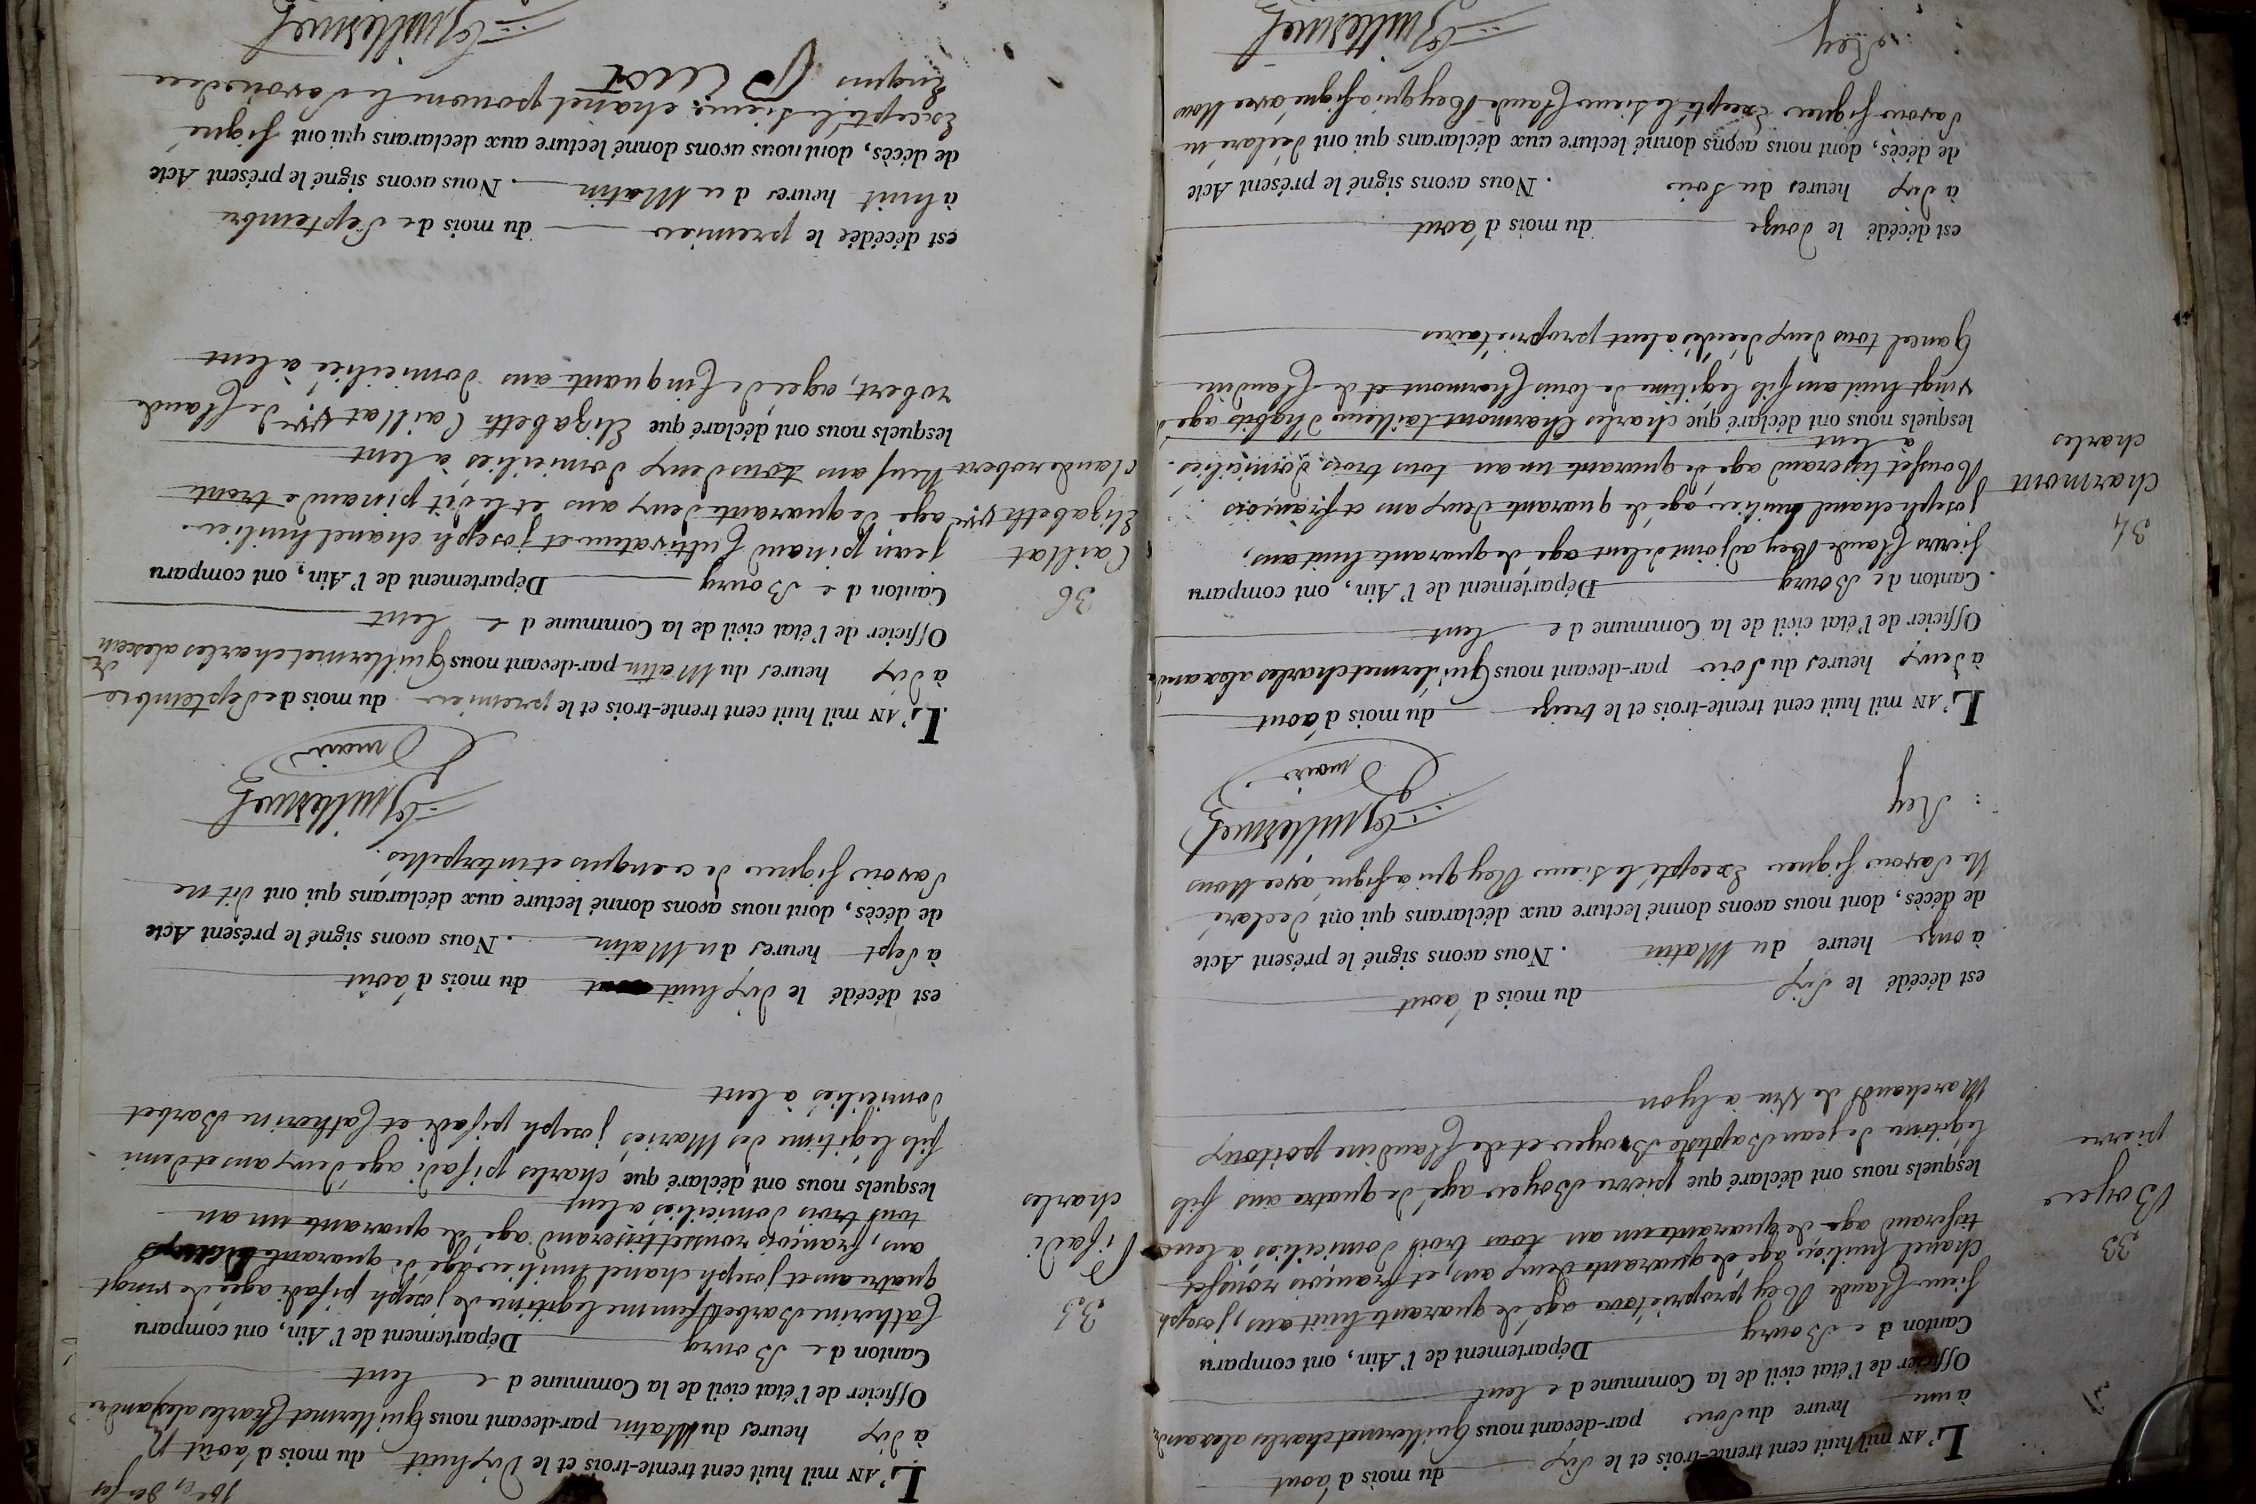 33
Boyer
pierre
L'AN mil huit cent trente-trois et le dix du mois d'aout
à une heure du Soir par-devant nous Guillermet charles alexandre
Officier de l'état civil de la Commune de lent
Canton de Bourg Département de l'Ain, ont comparu
sieur Claude Rey proprietaire age de quarante huit ans, joseph
chanel huilier agé de quarante deux ans, et françois rousset
tisserand age de quarante un an tous trois domiciliés a lent
lesquels nous ont déclaré que pierre Boyer agé de quatre ans fils
legitime de jean Baptiste Boyer et de Claudine poitoux
Marchands de Vin a lyon
est décédé le dix du mois d'aout
à onze heure du Matin . Nous avons signé le présent Acte
de décès, dont nous avons donné lecture aux déclarans qui ont déclaré
Ne Savoir signer Excepté le sieur Rey qui a signé avec Nous
Rey
Guillermet
maire
34
charmont
charles
L'AN mil huit cent trente-trois et le treize du mois d'aout
à deux heures du Soir par-devant nous Guillermet charles alexandre
Officier de l'état civil de la Commune de lent
Canton de Bourg Département de l'Ain, ont comparu
sieurs Claude Rey adjoint de lent age de quarante huit ans,
joseph chanel huilier agé de quarante deux ans et françois
Rousset tisserand agé de quarante un an tous trois domiciliés
a lent
lesquels nous ont déclaré que charles Charmont tailleur d'habits age
vingt huit ans fils legitime de louis Charmont et de Claudine
Gancel tous deux décédés a lent proprietaires
est décédé le douze du mois d'aout
à dix heures du Soir . Nous avons signé le présent Acte
de décès, dont nous avons donné lecture aux déclarans qui ont déclaré ne
Savoir signer Excepté le sieur Claude Rey qui a signé avec Nous
Rey
Guillermet
35
Pisadi
charles
L'AN mil huit cent trente-trois et le Dix huit du mois d'août
à dix heures du Matin par-devant nous Guillermet Charles alexandre
Officier de l'état civil de la Commune de lent
Canton de Bourg Département de l'Ain, ont comparu
Catherine Barbet femme legitime de joseph pisadi agée de vingt
quatre ans et joseph chanel huilier agé de quarante deux
ans, françois rousset tisserand agé de quarante un an
tous trois domiciliés a lent
lesquels nous ont déclaré que charles pisadi agé deux ans et demi
fils légitime des Mariés joseph pisadi et Catherine Barbet
domiciliés à lent
est décédé le dix huit du mois d'août
à Sept heures du Matin . Nous avons signé le présent Acte
de décès, dont nous avons donné lecture aux déclarans qui ont dit ne
Savoir signer de ce enquis et interpellés.
Guillermet
maire
36
Caillat
Elizabeth vve
Claude robert
L'AN mil huit cent trente-trois et le premier du mois de Septembre
à dix heures du Matin par-devant nous Guillermet charles alexandre
Officier de l'état civil de la Commune de lent
Canton de Bourg Département de l'Ain, ont comparu
jean pinaud Cultivateur et joseph chanel huilier
age de quarante deux ans et le dit pinaud e trente
Neuf ans tous deux domiciliés à lent
lesquels nous ont déclaré que Elizabeth Caillat vve de Claude
robert, agée de Cinquant ans domiciliée à lent
est décédée le premier du mois de Septembre
à huit heures du Matin . Nous avons signé le présent Acte
de décès, dont nous avons donné lecture aux déclarans qui ont signé
Excepté le sieur chanel pour ne le Savoir de ce
Enquis
Guillermet